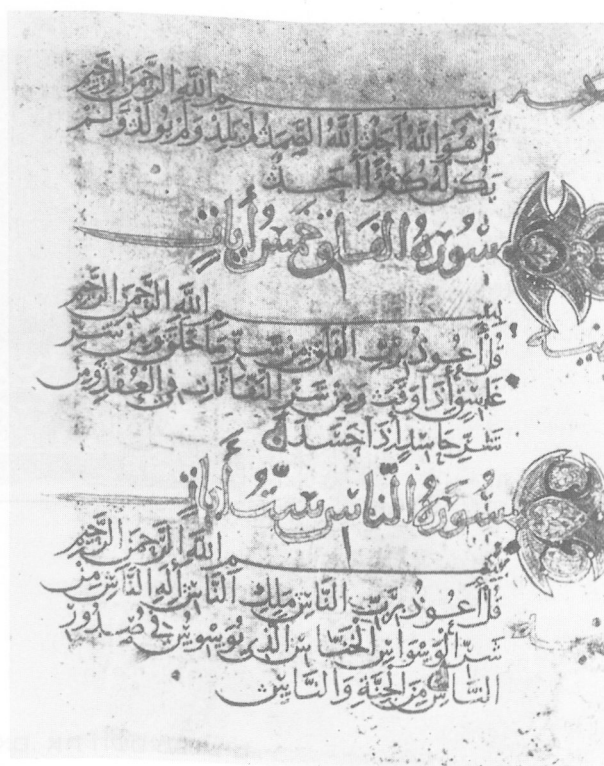 بسم الله الرحمن الرحيم
قل هو الله أحد الله الصمد لم يلد ولم يولد ولم
يكن له كفوا أحد
سورة الفلق خمس أيات
بسم الله الرحمن الرحيم
قل أعوذ برب الفلق من شر ما خلق ومن شر
غاسق إذا وقب ومن شر النفاثات في العقد ومن
شر حاسد إذا حسد
سورة الناس ست أيات
بسم الله الرحمن الرحيم
قل أعوذ برب الناس ملك الناس إله الناس من
شر الوسواس الخناس الذي يوسوس في صدور
الناس من الجنة والناس